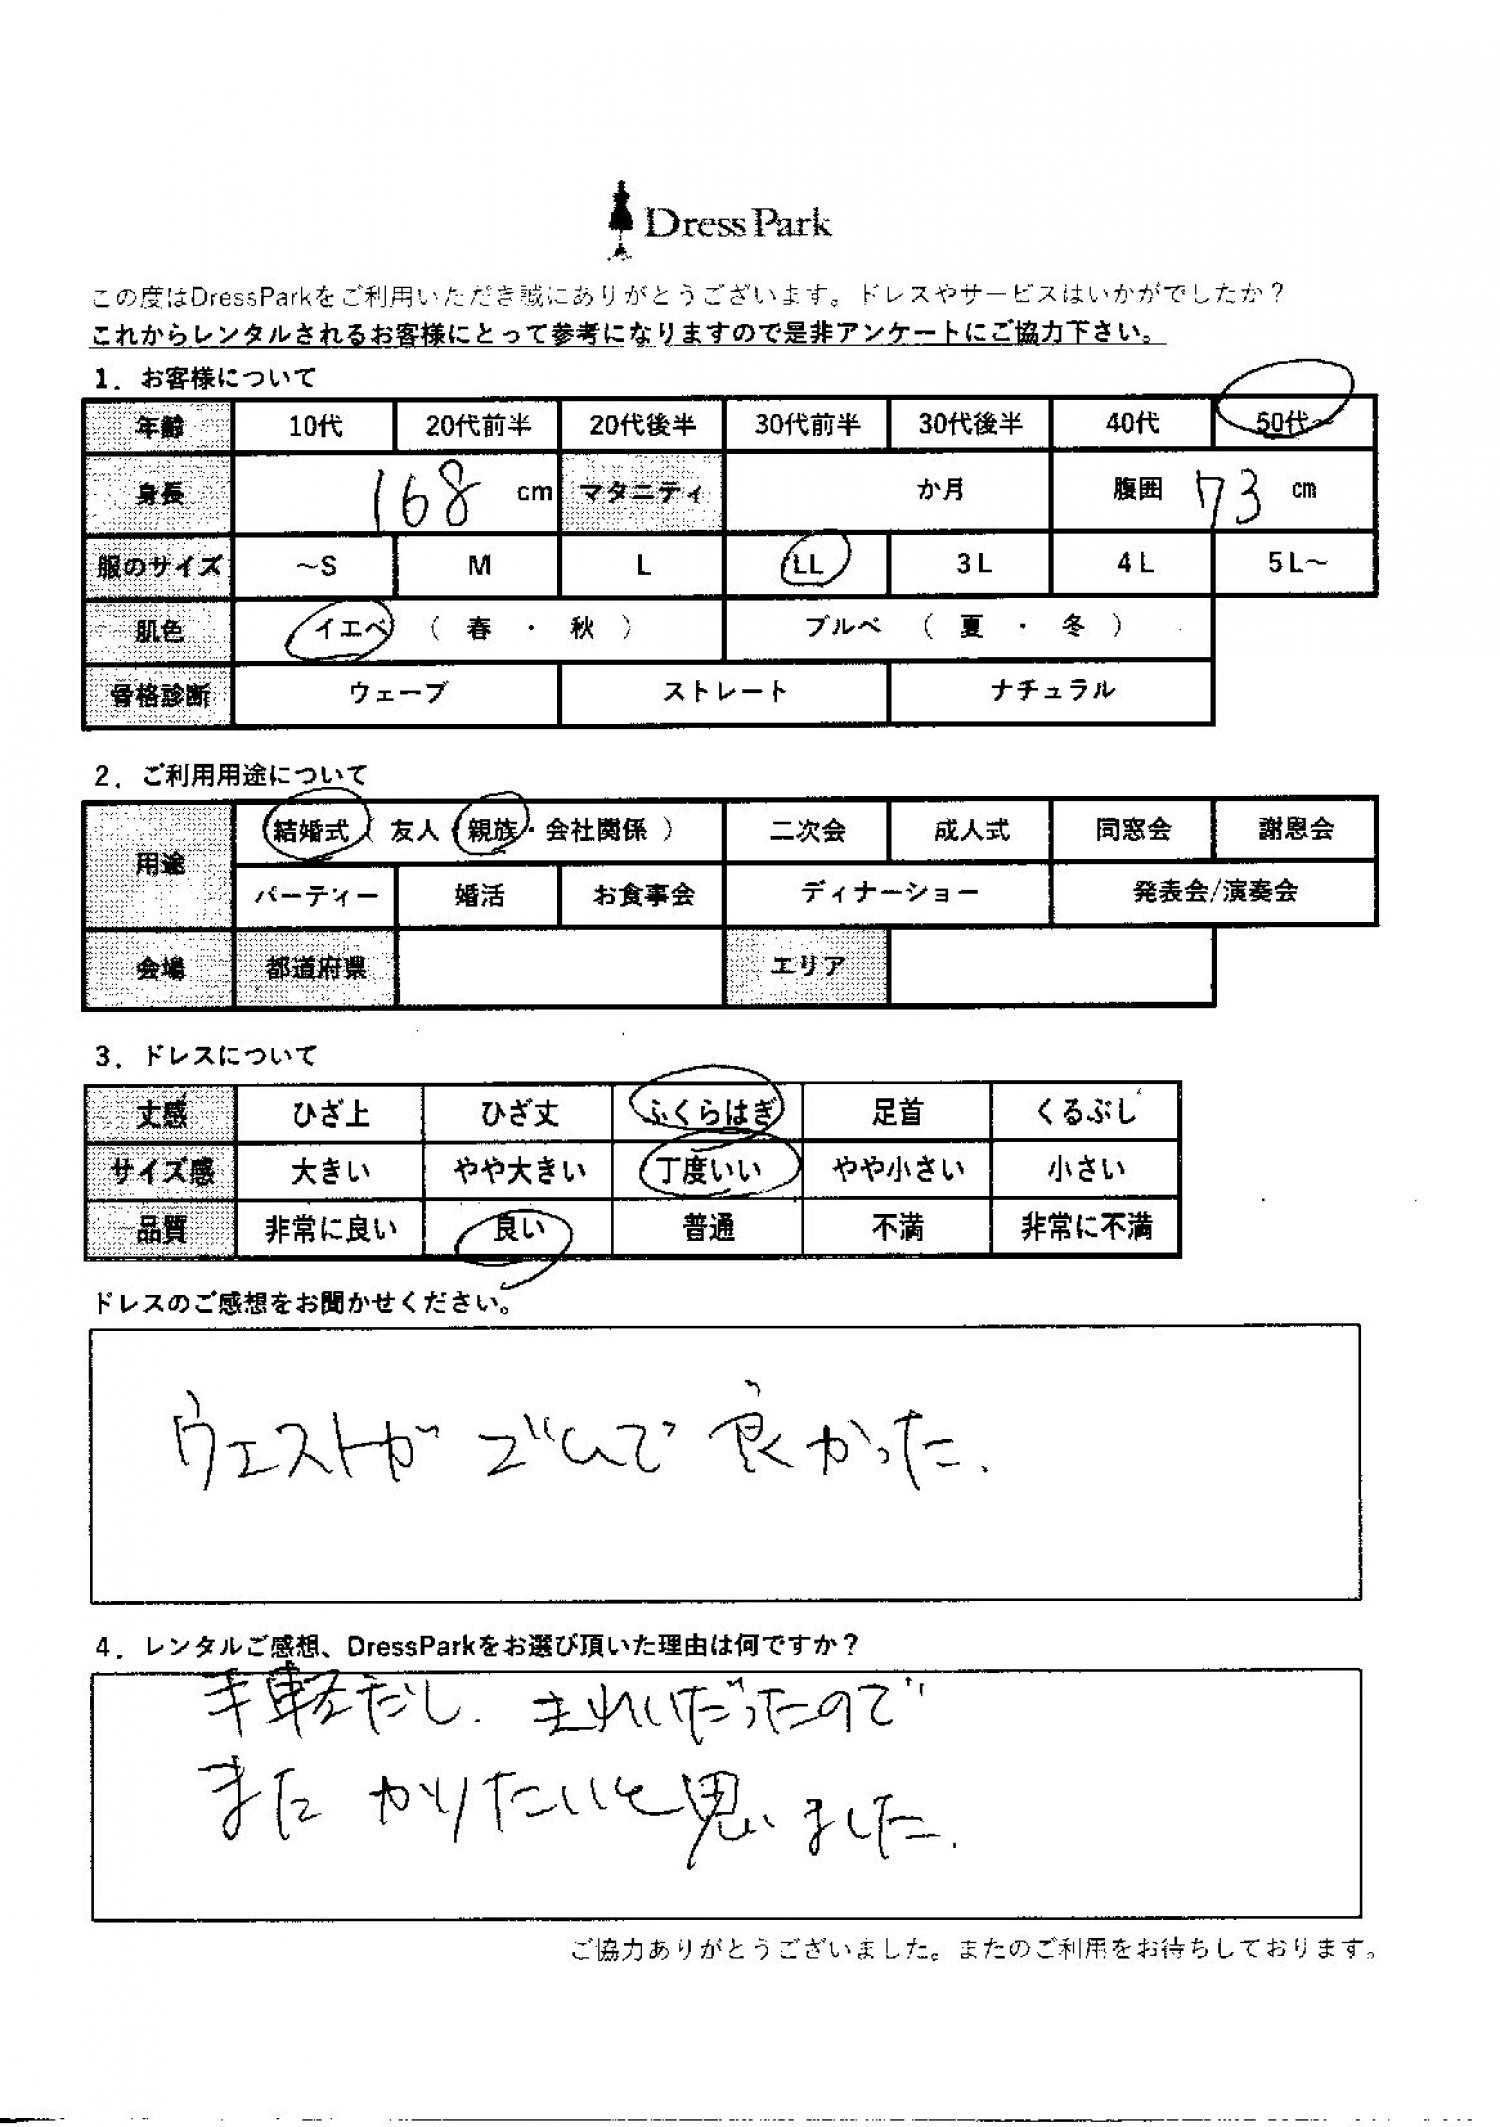 Dress Park
この度はDressParkをご利用いただき誠にありがとうございます。ドレスやサービスはいかがでしたか？
これからレンタルされるお客様にとって参考になりますので是非アンケートにご協力下さい。
1．お客様について
年齢 10代 20代前半 20代後半 30代前半 30代後半 40代 50代～
身長 168 cm マタニティ か月 腹囲 73 cm
服のサイズ ～S M L LL 3L 4L 5L～
肌色 イエベ （ 春 ・ 秋 ） ブルベ （ 夏 ・ 冬 ）
骨格診断 ウェーブ ストレート ナチュラル
2．ご利用用途について
用途 結婚式（ 友人・親族・会社関係 ） 二次会 成人式 同窓会 謝恩会
パーティー 婚活 お食事会 ディナーショー 発表会/演奏会
会場 都道府県 エリア
3．ドレスについて
丈感 ひざ上 ひざ丈 ふくらはぎ 足首 くるぶし
サイズ感 大きい やや大きい 丁度いい やや小さい 小さい
品質 非常に良い 良い 普通 不満 非常に不満
ドレスのご感想をお聞かせください。
ウェストがゴムで良かった.
4．レンタルご感想、DressParkをお選び頂いた理由は何ですか？
手軽だし. きれいだったので
また かりたいと思いました.
ご協力ありがとうございました。またのご利用をお待ちしております。